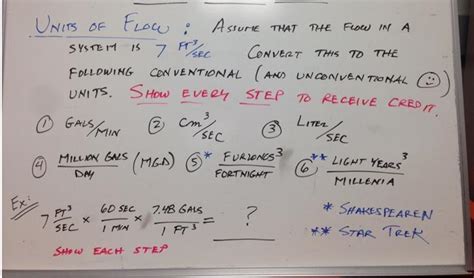 UNITS OF FLOW: ASSUME THAT THE FLOW IN A
SYSTEM IS 7 FT³/SEC CONVERT THIS TO THE
FOLLOWING CONVENTIONAL (AND UNCONVENTIONAL ☺)
UNITS. SHOW EVERY STEP TO RECEIVE CREDIT.
① GALS/MIN ② CM³/SEC ③ LITER/SEC
④ MILLION GALS/DAY (MGD) ⑤ * FURLONGS³/FORTNIGHT ⑥ ** LIGHT YEARS³/MILLENIA
Ex: 7 FT³/SEC × 60 SEC/1 MIN × 7.48 GALS/1 FT³ = ?
* SHAKESPEAREN
** STAR TREK
SHOW EACH STEP